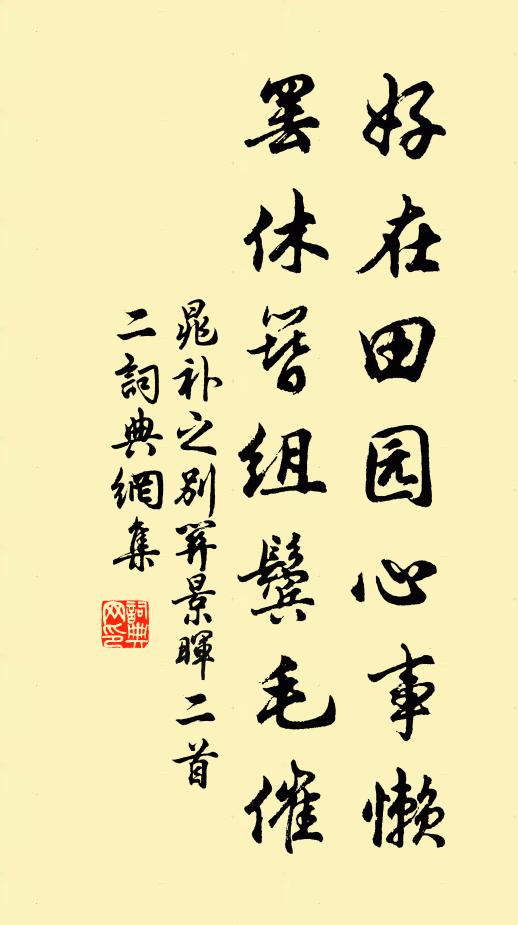 好在田园心事懒
罢休簪组鬓毛催
晁补之别景暉二首
二詞典網集
詞典网印